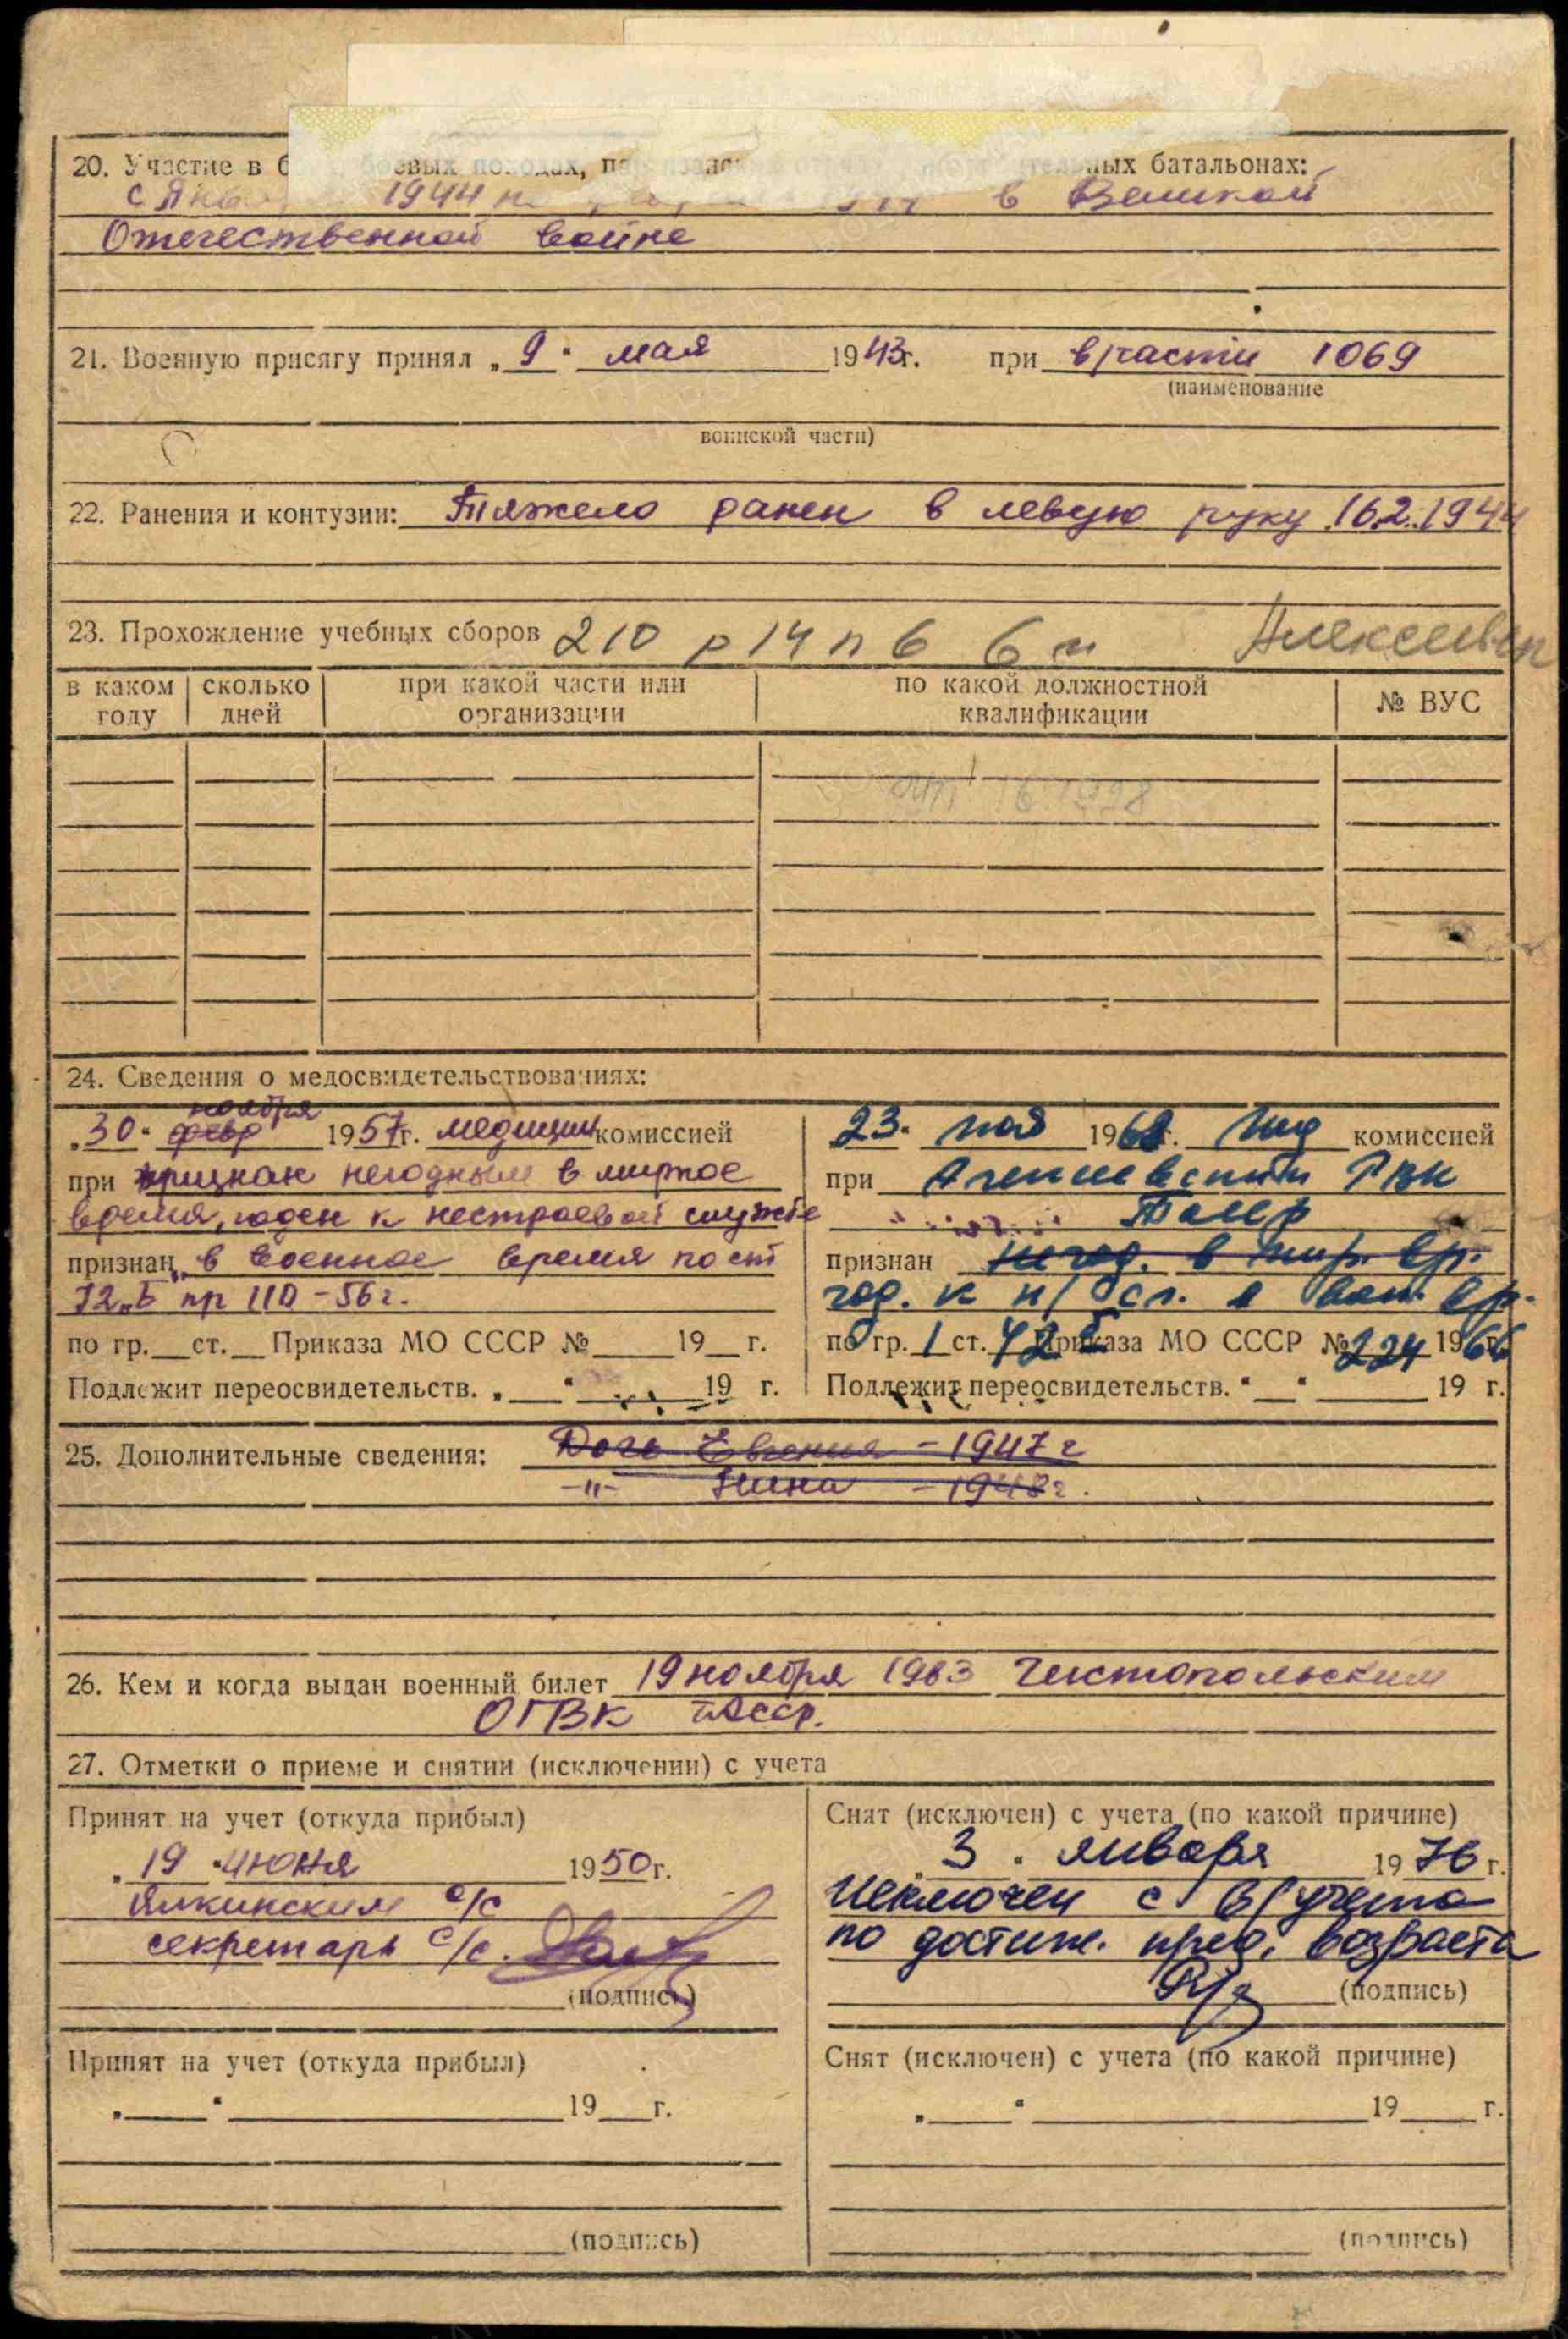 20. Участие в боевых походах, батальонах:
1944 в Великой
Отечественной войне
21. Военную присягу принял „9“ мая 1943г. при в/части 1069
(наименование
воинской части)
22. Ранения и контузии: Тяжело ранен в левую руку 16.2.1944
23. Прохождение учебных сборов 210
в каком году
сколько дней
при какой части или организации
по какой должностной квалификации
№ ВУС
24. Сведения о медосвидетельствованиях:
ноября
„30“ февр 1957г. медицин комиссией
при признан негодным в мирное
время, годен к нестроевой службе
признан в военное время по ст
72„б пр 110-56г.
по гр.__ст.__Приказа МО СССР №____19__г.
Подлежит переосвидетельств. „___“ ______19 г.
23. мая 1968г. комиссией
при РВК
признан негод. в мир. вр.
год. к н/сл. в воен. вр.
по гр. 1 ст. 42б Приказа МО СССР №224 1966г.
Подлежит переосвидетельств. “__“ ______ 19 г.
25. Дополнительные сведения: Дочь Евгения - 1947г
-"- Нина - 1948г.
26. Кем и когда выдан военный билет 19 ноября 1963 Чистопольским
ОГВК ТАССР.
27. Отметки о приеме и снятии (исключении) с учета
Принят на учет (откуда прибыл)
„19“ июня 1950г.
Ялкинским с/с
секретарь с/с.
(подпись)
Снят (исключен) с учета (по какой причине)
„3“ января 1976г.
Исключен с в/учета
по достиж. пред. возраста
(подпись)
Принят на учет (откуда прибыл)
„____“ ____________19___г.
(подпись)
Снят (исключен) с учета (по какой причине)
„____“ ____________19____г.
(подпись)